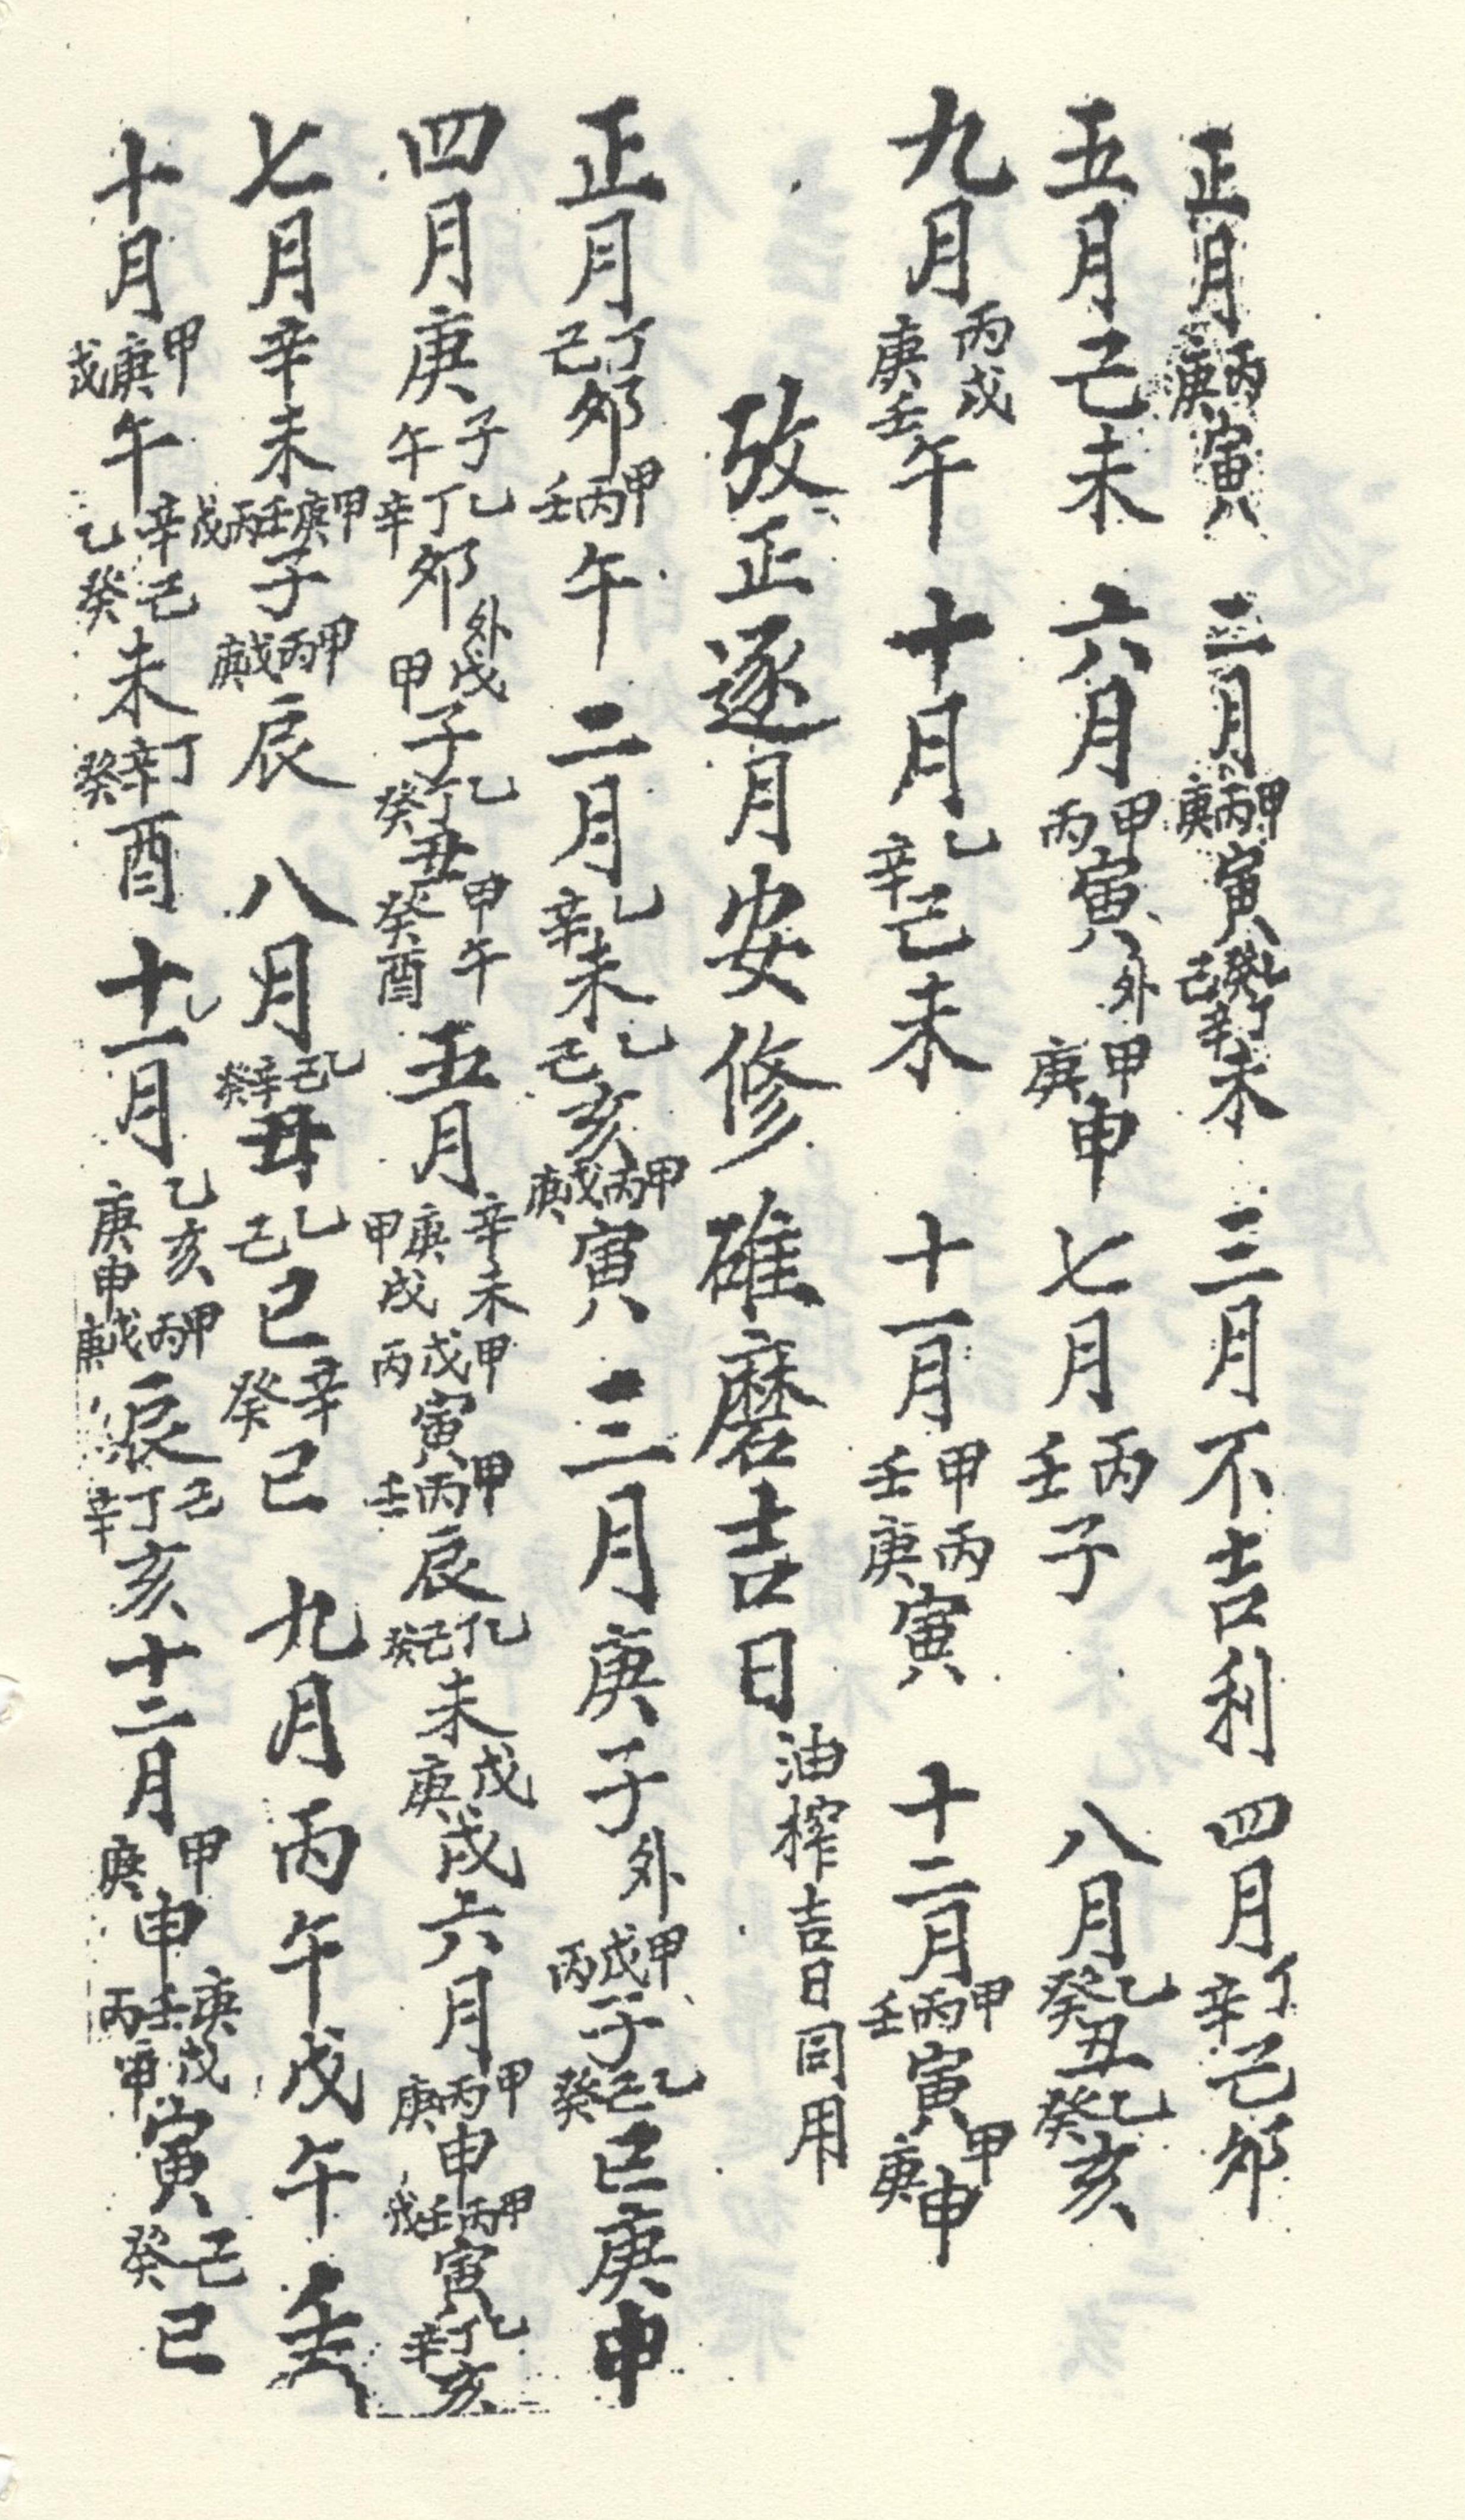 正月丙庚寅 二月甲丙庚寅乙癸丁己辛未 三月不吉利 四月丁辛己卯
五月己未 六月甲丙寅外甲庚申 七月丙壬子 八月乙癸丑乙癸亥
九月丙戌庚壬午 十月乙辛己未 十一月甲壬丙庚寅 十二月甲丙壬寅甲庚申
攷正逐月安修碓磨吉日油榨吉日同用
正月丁己卯甲丙壬午 二月乙辛未乙己亥甲丙戊庚寅 三月庚子外甲戊丙子乙己癸巳庚申
四月庚子午乙丁辛卯外戊甲子乙丁癸丑甲午癸酉 五月辛未庚甲戌甲戊丙寅甲丙壬辰乙丁己癸未戊庚戌六月甲丙庚申甲丙壬戊寅乙丁辛亥
七月辛未甲庚壬丙戊子甲丙戊庚辰 八月乙己辛癸丑乙己巳辛癸巳 九月丙午戊午
十月甲庚戊午辛己乙癸未丁辛癸酉十一月乙乙亥庚申甲丙戊庚辰己丁辛亥十二月甲庚申庚戌壬丙申寅己癸巳